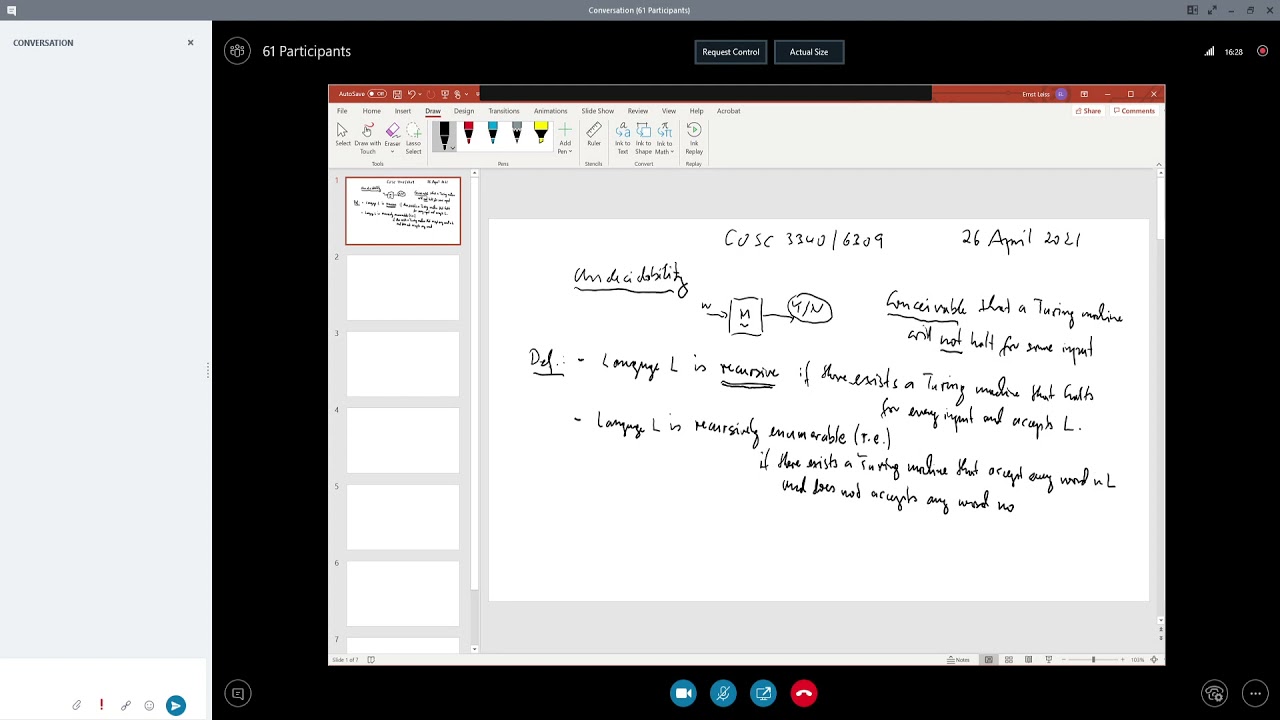 Conversation (61 Participants)
CONVERSATION
61 Participants
Request Control
Actual Size
16:28
AutoSave Off
Ernst Leiss
EL
File Home Insert Draw Design Transitions Animations Slide Show Review View Help Acrobat
Share Comments
Select Draw with Touch Eraser Lasso Select
Add Pen
Ruler
Ink to Text Ink to Shape Ink to Math
Ink Replay
Tools Pens Stencils Convert Replay
1
2
3
4
5
6
7
COSC 3340/6309 26 April 2021
Undecidability
w M Y/N
Conceivable that a Turing machine
will not halt for some input
Def.: - Language L is recursive if there exists a Turing machine that halts
for every input and accepts L.
- Language L is recursively enumerable (r.e.)
if there exists a Turing machine that accept any word in L
and does not accepts any word no
Slide 1 of 7
Notes
103%